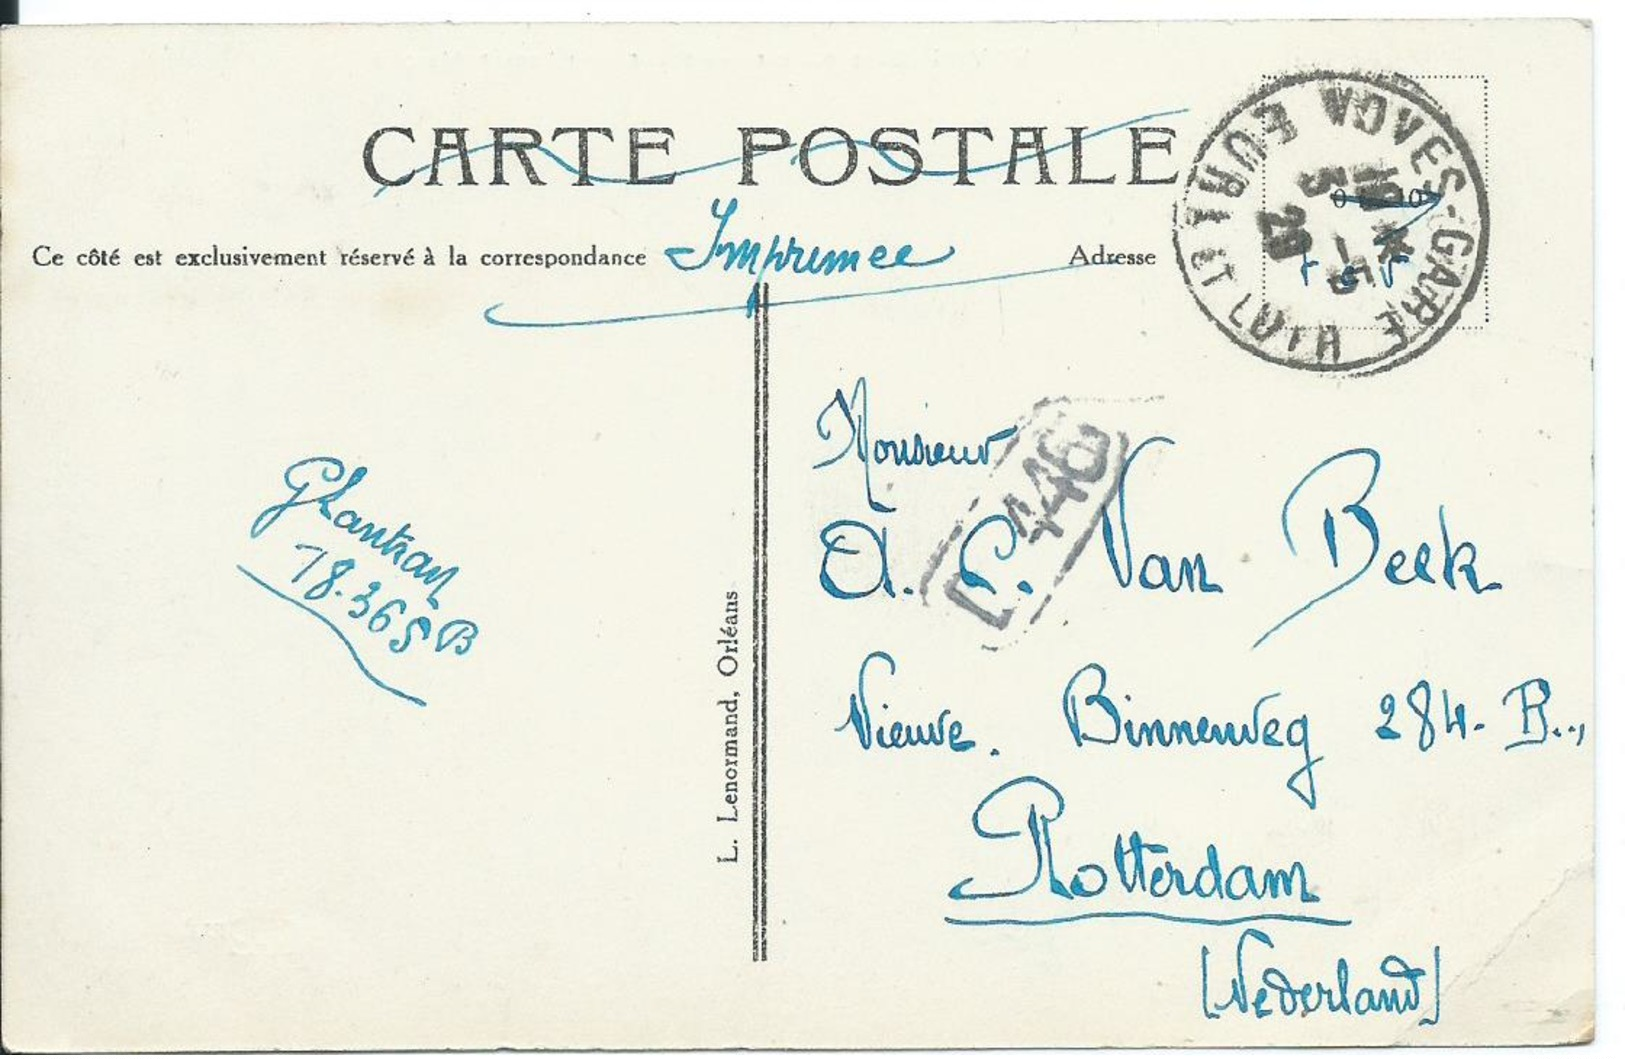 CARTE POSTALE
Imprimee
Ce côté est exclusivement réservé à la correspondance
Adresse
VOVES-GARE EURE ET LOIR
5 -5
29
T C V
L 446
Monsieur
A. C. Van Beek
Nieuwe. Binnenweg 284. B..,
Rotterdam
[Nederland]
Ghantran
78.365 B
L. Lenormand, Orléans